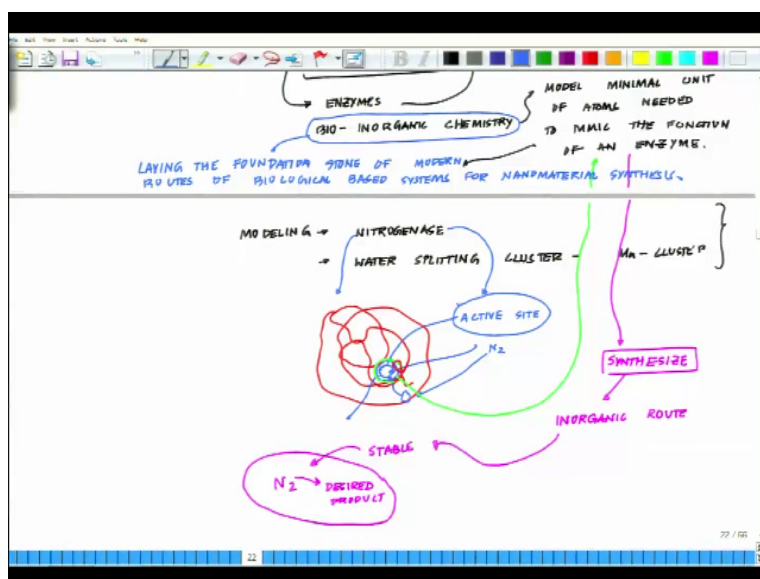 Edit View Insert Actions Tools Help
B I
ENZYMES
BIO-INORGANIC CHEMISTRY
MODEL MINIMAL UNIT
OF ATOMS NEEDED
TO MIMIC THE FUNCTION
OF AN ENZYME.
LAYING THE FOUNDATION STONE OF MODERN
ROUTES OF BIOLOGICAL BASED SYSTEMS FOR NANOMATERIAL SYNTHESIS.
MODELING → NITROGENASE
→ WATER SPLITTING CLUSTER - Mn-CLUSTER
ACTIVE SITE
N2
SYNTHESIZE
INORGANIC ROUTE
STABLE
N2 → DESIRED
PRODUCT
22/66
22